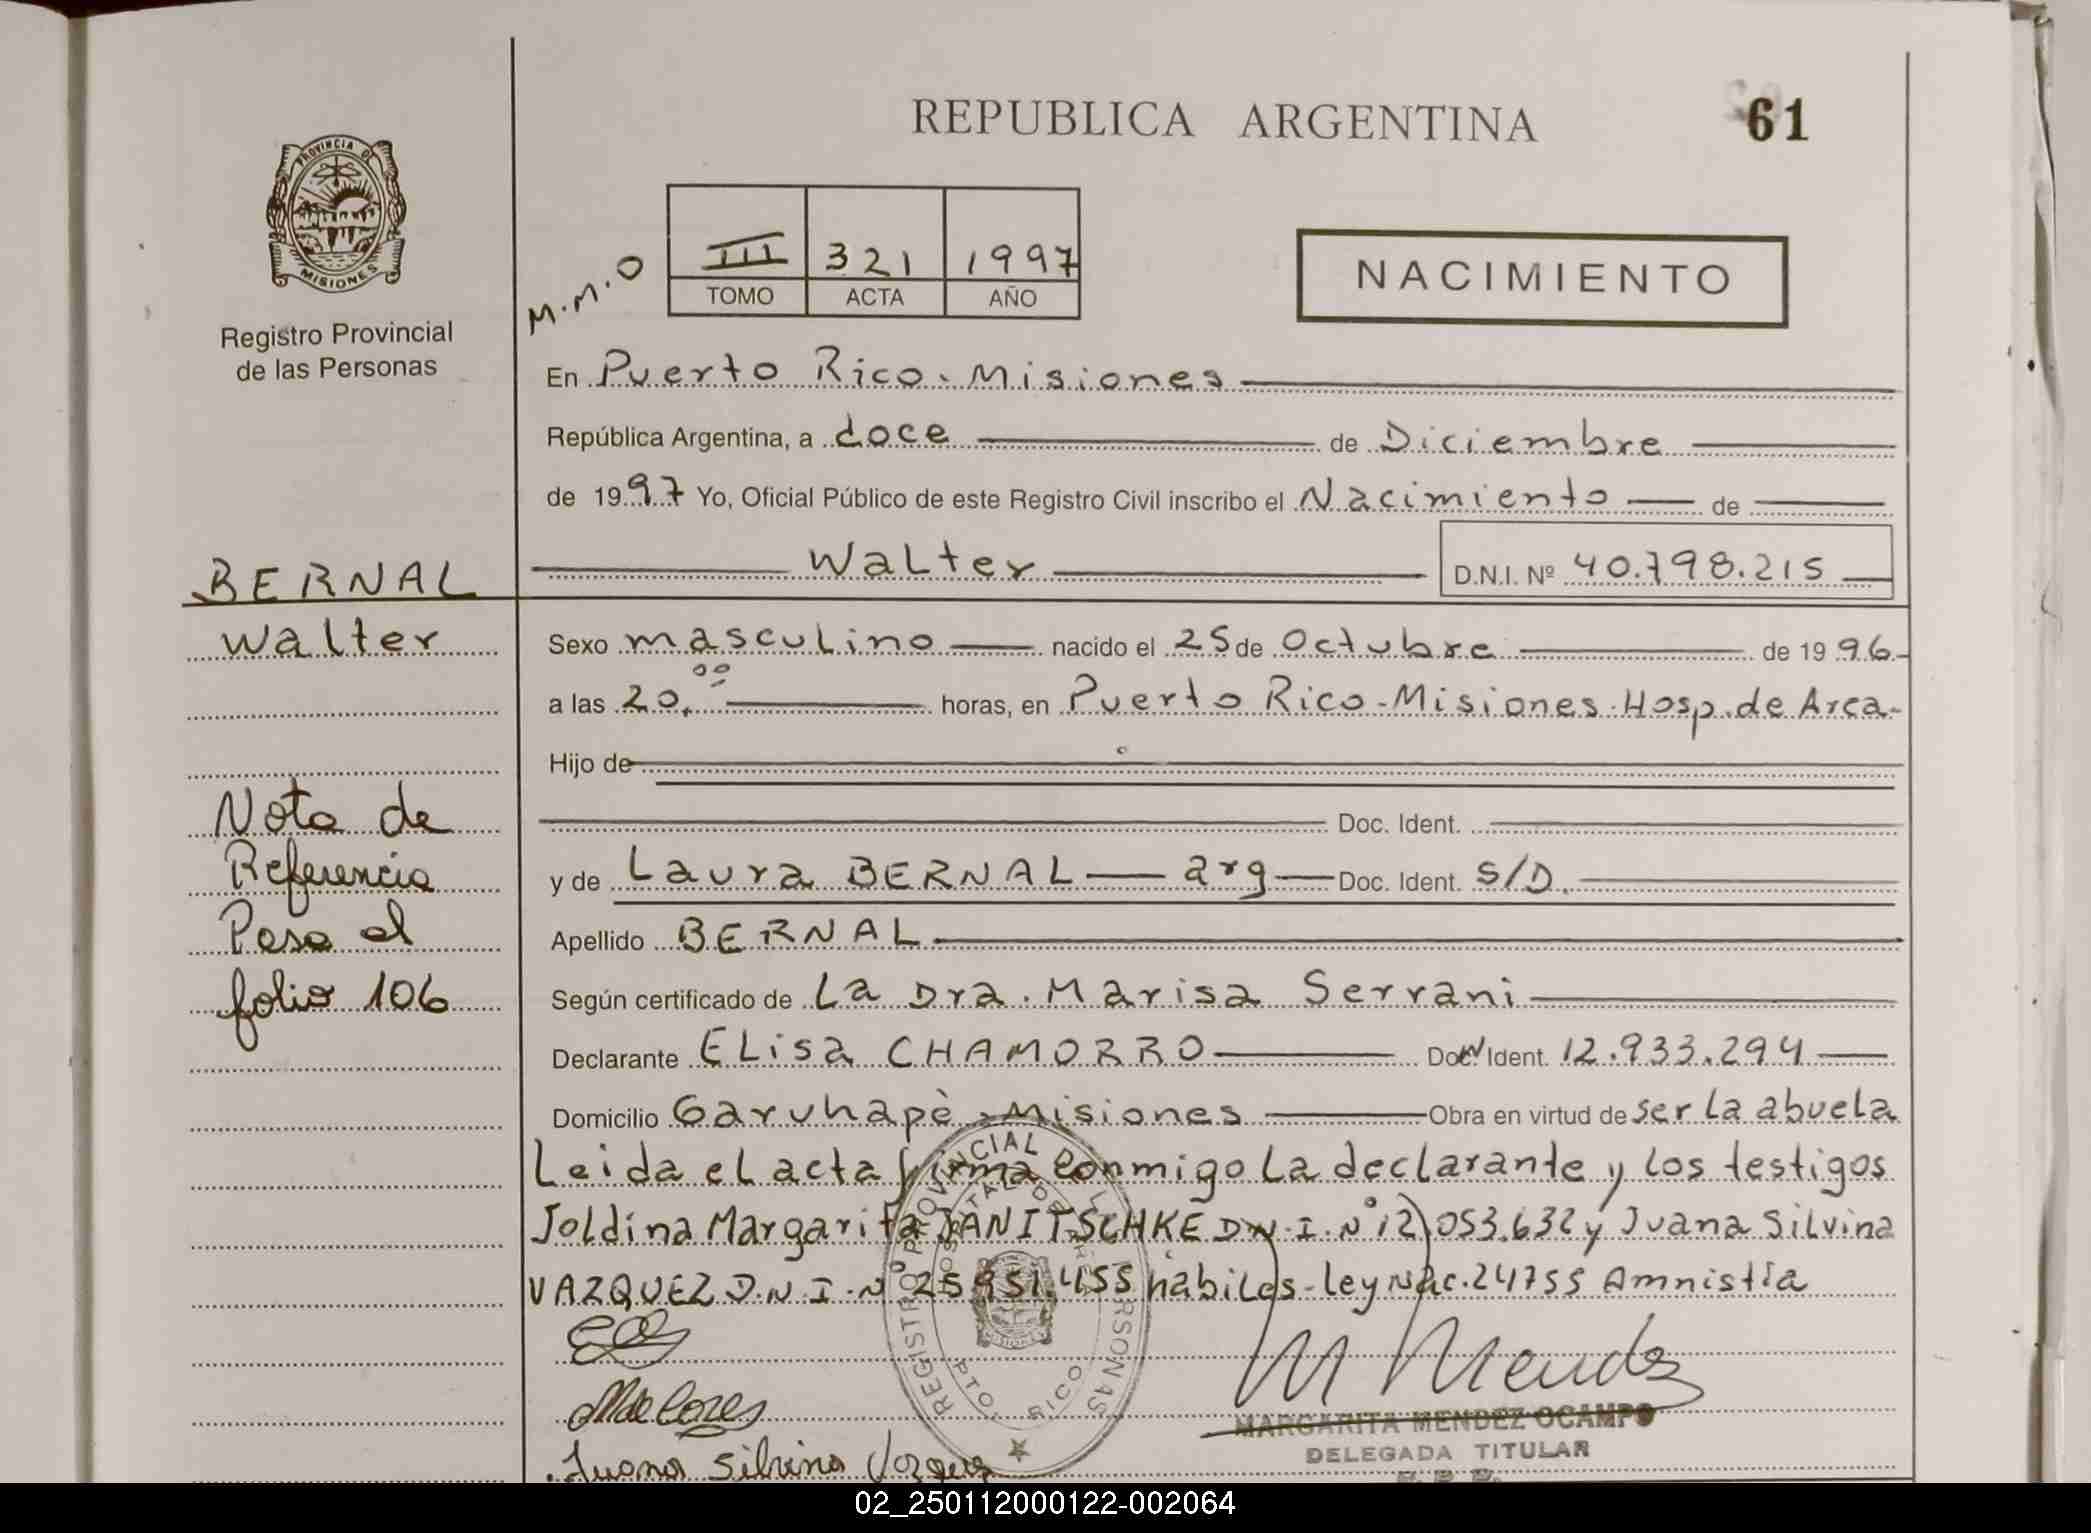 REPUBLICA ARGENTINA
61
PROVINCIA DE
MISIONES
Registro Provincial
de las Personas
M.M.O
III 321 1997
TOMO ACTA AÑO
NACIMIENTO
En Puerto Rico - Misiones
República Argentina, a doce de Diciembre
de 1997 Yo, Oficial Público de este Registro Civil inscribo el Nacimiento de
Walter D.N.I. Nº 40.798.215
BERNAL
Walter
Sexo masculino nacido el 25 de Octubre de 1996-
a las 20.00 horas, en Puerto Rico - Misiones - Hosp. de Area-
Hijo de
Doc. Ident.
Nota de
Referencia
Pasa al
folio 106
y de Laura BERNAL arg Doc. Ident. S/D.
Apellido BERNAL
Según certificado de La Dra. Marisa Serrani
Declarante Elisa CHAMORRO Doc. Ident. 12.933.294
Domicilio Garuhapè - Misiones Obra en virtud de ser la abuela
Leida el acta firma conmigo La declarante y los testigos
Joldina Margarita JANITSCHKE D.N.I. Nº 12.053.632 y Juana Silvina
VAZQUEZ D.N.I. Nº 25.951.455 habiles - ley Nac. 24755 Amnistía
M Mendez
Juana Silvina Vazquez
MARGARITA MENDEZ OCAMPO
DELEGADA TITULAR
REGISTRO PROVINCIAL DE LAS PERSONAS
PTO. RICO
02_250112000122-002064